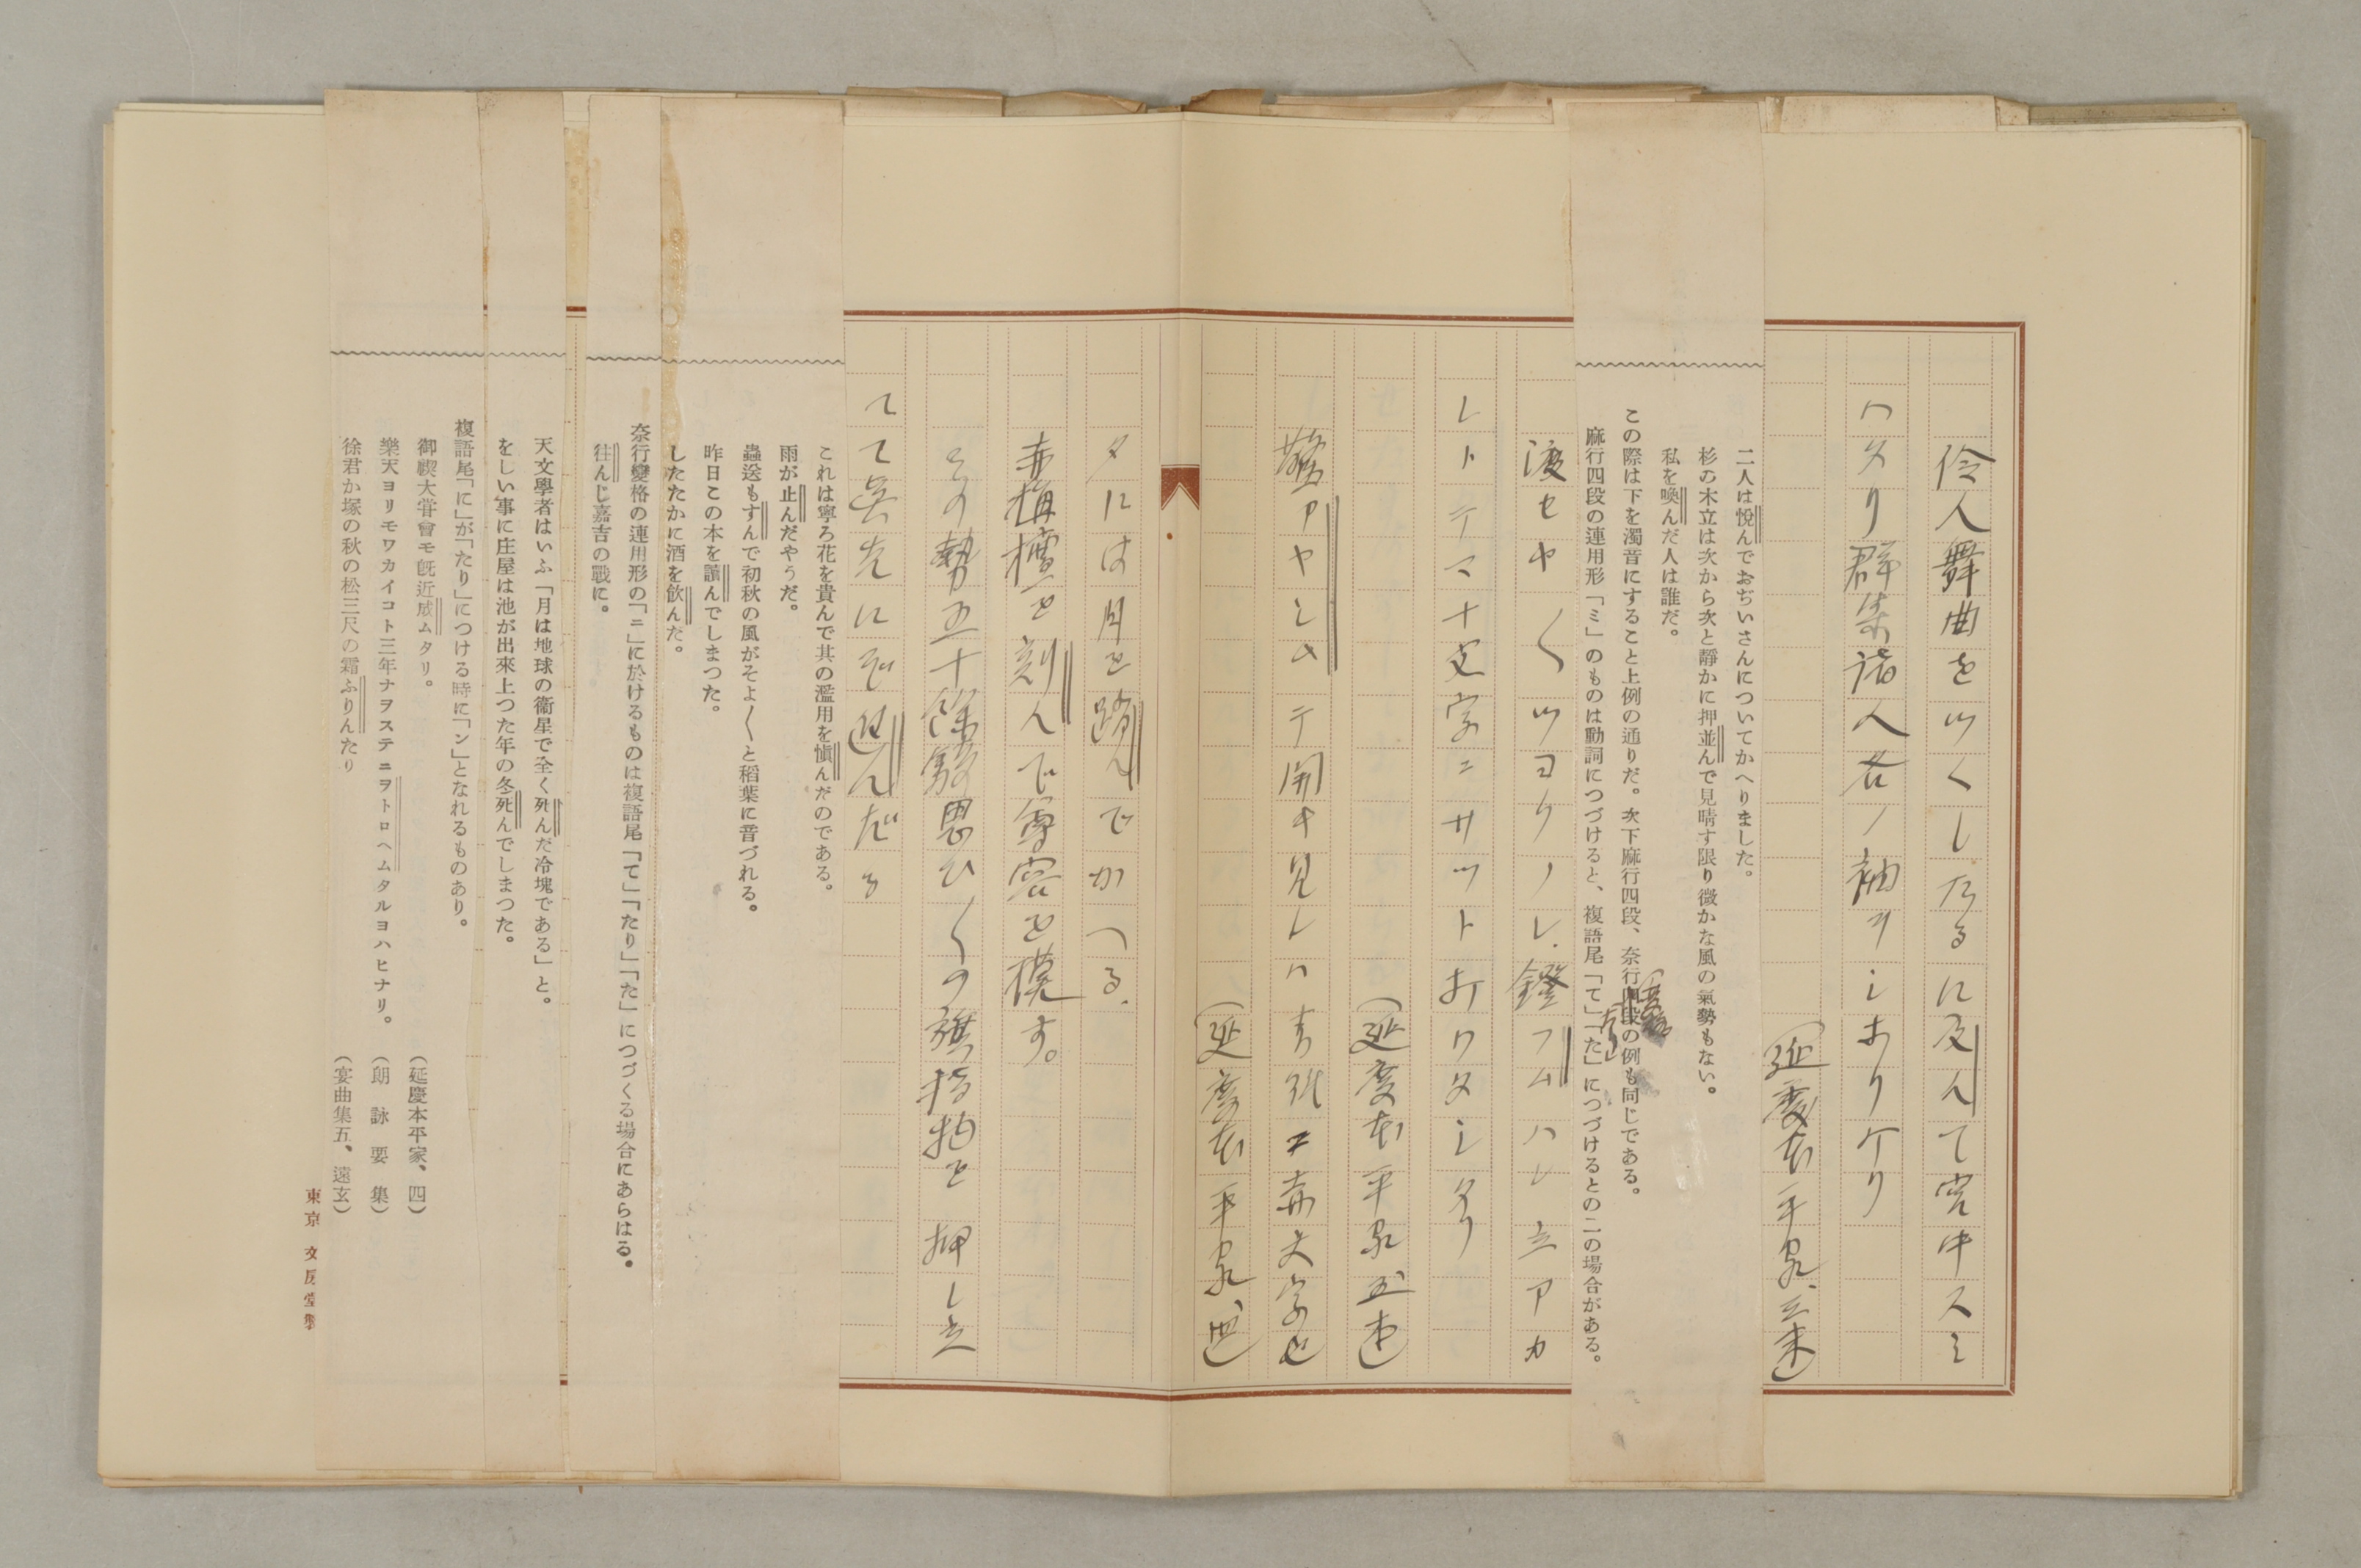 伶人舞曲をツくしたるに及んて宮中スミ
ハタリ群集諸人各ノ袖ヲシホリケリ
(延慶本平家、三末)
二人は悅んでおぢいさんについてかへりました。
杉の木立は次から次と靜かに押並んで見晴す限り微かな風の氣勢もない。
私を喚んだ人は誰だ。
この際は下を濁音にすること上例の通りだ。次下麻行四段、奈行の例も同じである。
麻行四段の連用形「ミ」のものは動詞につづけると、複語尾「て」「た」につづけるとの二の場合がある。
渡セヤ〱ツヨクノレ.鐙フムハレ立アカ
レトテマ十文字ニサツトオワタシタリ
(延慶本平家五本)
驚アヤシムテ開キ見レハ
(延慶本平家、四)
夕には月を踏んでかへる.
赤栴檀を刻んで尊容を模す。
その勢五十餘騎思ひ〱の旗指物を押し立
てて眞先にぞ進んだる
これは寧ろ花を貴んで其の濫用を愼んだのである。
雨が止んだやうだ。
蟲送もすんで初秋の風がそよ〱と稻葉に音づれる。
昨日この本を讀んでしまつた。
したたかに酒を飮んだ。
奈行變格の連用形の「ニ」に於けるものは複語尾「て」「たり」「た」につづくる場合にあらはる。
往んじ嘉吉の戰に。
天文學者はいふ「月は地球の衞星で全く死んだ冷塊である」と。
をしい事に庄屋は池が出來上つた年の冬死んでしまつた。
複語尾「に」が「たり」につける時に「ン」となれるものあり。
御禊大甞會モ既近成ムタリ。(延慶本平家、四)
樂天ヨリモワカイコト三年ナヲステニヲトロヘムタルヨハヒナリ。(朗詠要集)
徐君か塚の秋の松三尺の霜ふりんたり(宴曲集五、遠玄)
東京 文房堂製